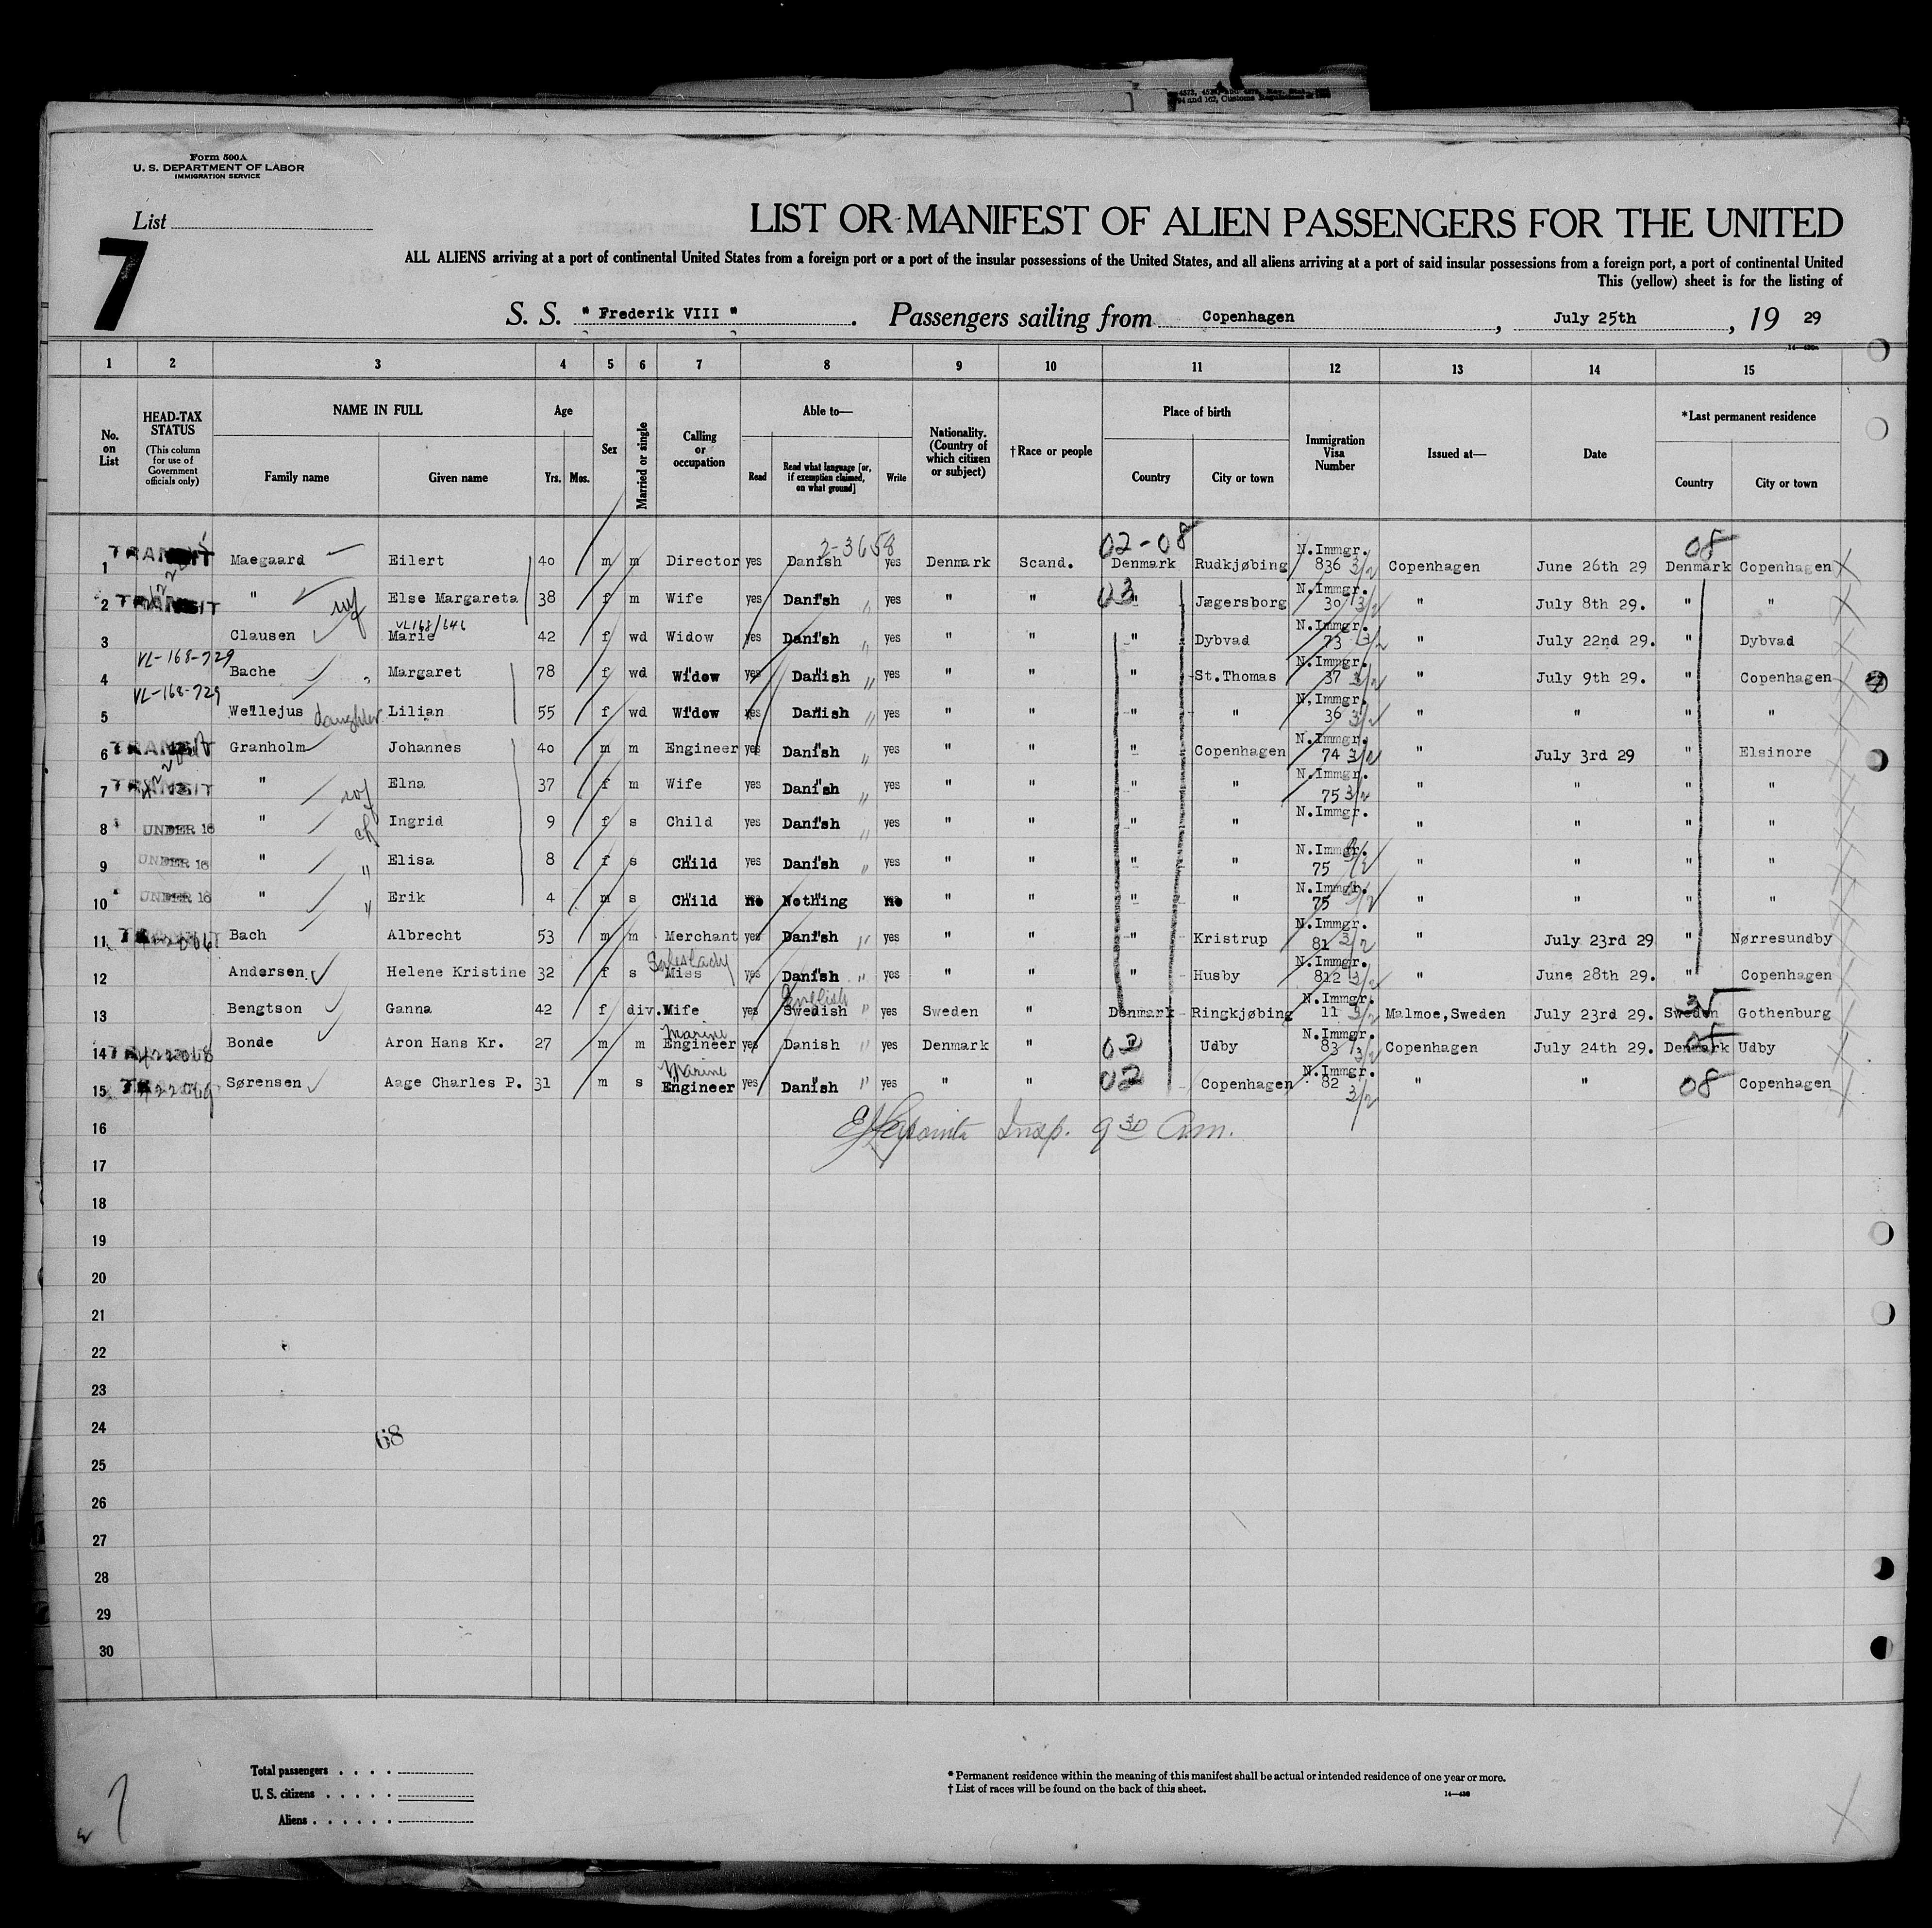 4573, 4574, and 4578, Rev. Stat.,
94 and 162, Customs Regulations of
Form 500A
U. S. DEPARTMENT OF LABOR
IMMIGRATION SERVICE
List
7
LIST OR MANIFEST OF ALIEN PASSENGERS FOR THE UNITED
ALL ALIENS arriving at a port of continental United States from a foreign port or a port of the insular possessions of the United States, and all aliens arriving at a port of said insular possessions from a foreign port, a port of continental United
This (yellow) sheet is for the listing of
S. S. " Frederik VIII " . Passengers sailing from Copenhagen , July 25th , 19 29
1 2 3 4 5 6 7 8 9 10 11 12 13 14 15
No. on List
HEAD-TAX STATUS (This column for use of Government officials only)
NAME IN FULL Family name Given name
Age Yrs. Mos.
Sex
Married or single
Calling or occupation
Able to— Read Read what language [or, if exemption claimed, on what ground] Write
Nationality. (Country of which citizen or subject)
†Race or people
Place of birth Country City or town
Immigration Visa Number
Issued at—
Date
*Last permanent residence Country City or town
2-3658 02-08 08
1 TRANSIT Maegaard Eilert 40 m m Director yes Danish yes Denmark Scand. Denmark Rudkjøbing N.Immgr. 836 3/2 Copenhagen June 26th 29 Denmark Copenhagen
2 TRANSIT " wf Else Margareta 38 f m Wife yes Danish " yes " " 03 " Jægersborg N.Immgr. 30 3/2 " July 8th 29. " "
VL168/646
3 Clausen Marie 42 f wd Widow yes Danish yes " " " Dybvad N.Immgr. 73 3/2 " July 22nd 29. " Dybvad
VL-168-729
4 Bache Margaret 78 f wd Widow yes Danish " yes " " " St.Thomas N.Immgr. 37 3/2 " July 9th 29. " Copenhagen
VL-168-729
5 Wellejus daughter Lilian 55 f wd Widow yes Danish " yes " " " " N.Immgr. 36 3/2 " " " "
6 TRANSIT Granholm Johannes 40 m m Engineer yes Danish " yes " " " Copenhagen N.Immgr. 74 3/2 " July 3rd 29 " Elsinore
7 TRANSIT " wf Elna 37 f m Wife yes Danish " yes " " " " N.Immgr. 75 3/2 " " " "
8 UNDER 16 " ch Ingrid 9 f s Child yes Danish " yes " " " " N.Immgr. " " " "
9 UNDER 16 " " Elisa 8 f s Child yes Danish " yes " " " " N.Immgr. 75 3/2 " " " "
10 UNDER 16 " " Erik 4 m s Child no Nothing no " " " " N.Immgr. 75 3/2 " " " "
11 Bach Albrecht 53 m m Merchant yes Danish " yes " " " Kristrup N.Immgr. 81 3/2 " July 23rd 29 " Nørresundby
Saleslady
12 Andersen Helene Kristine 32 f s Miss yes Danish " yes " " " Husby N.Immgr. 812 3/2 " June 28th 29. " Copenhagen
English
13 Bengtson Ganna 42 f div. Wife yes Swedish " yes Sweden " Denmark Ringkjøbing N.Immgr. 11 3/2 Malmoe,Sweden July 23rd 29. Sweden Gothenburg
Marine
14 Bonde Aron Hans Kr. 27 m m Engineer yes Danish " yes Denmark " 02 Udby N.Immgr. 83 3/2 Copenhagen July 24th 29. Denmark Udby
Marine
15 Sørensen Aage Charles P. 31 m s Engineer yes Danish " yes " " 02 Copenhagen N.Immgr. 82 3/2 " " 08 Copenhagen
16 Insp. 9 30 Am.
17
18
19
20
21
22
23
24
68
25
26
27
28
29
30
Total passengers . . . .
U. S. citizens . . . . .
Aliens . . . . . .
* Permanent residence within the meaning of this manifest shall be actual or intended residence of one year or more.
† List of races will be found on the back of this sheet.